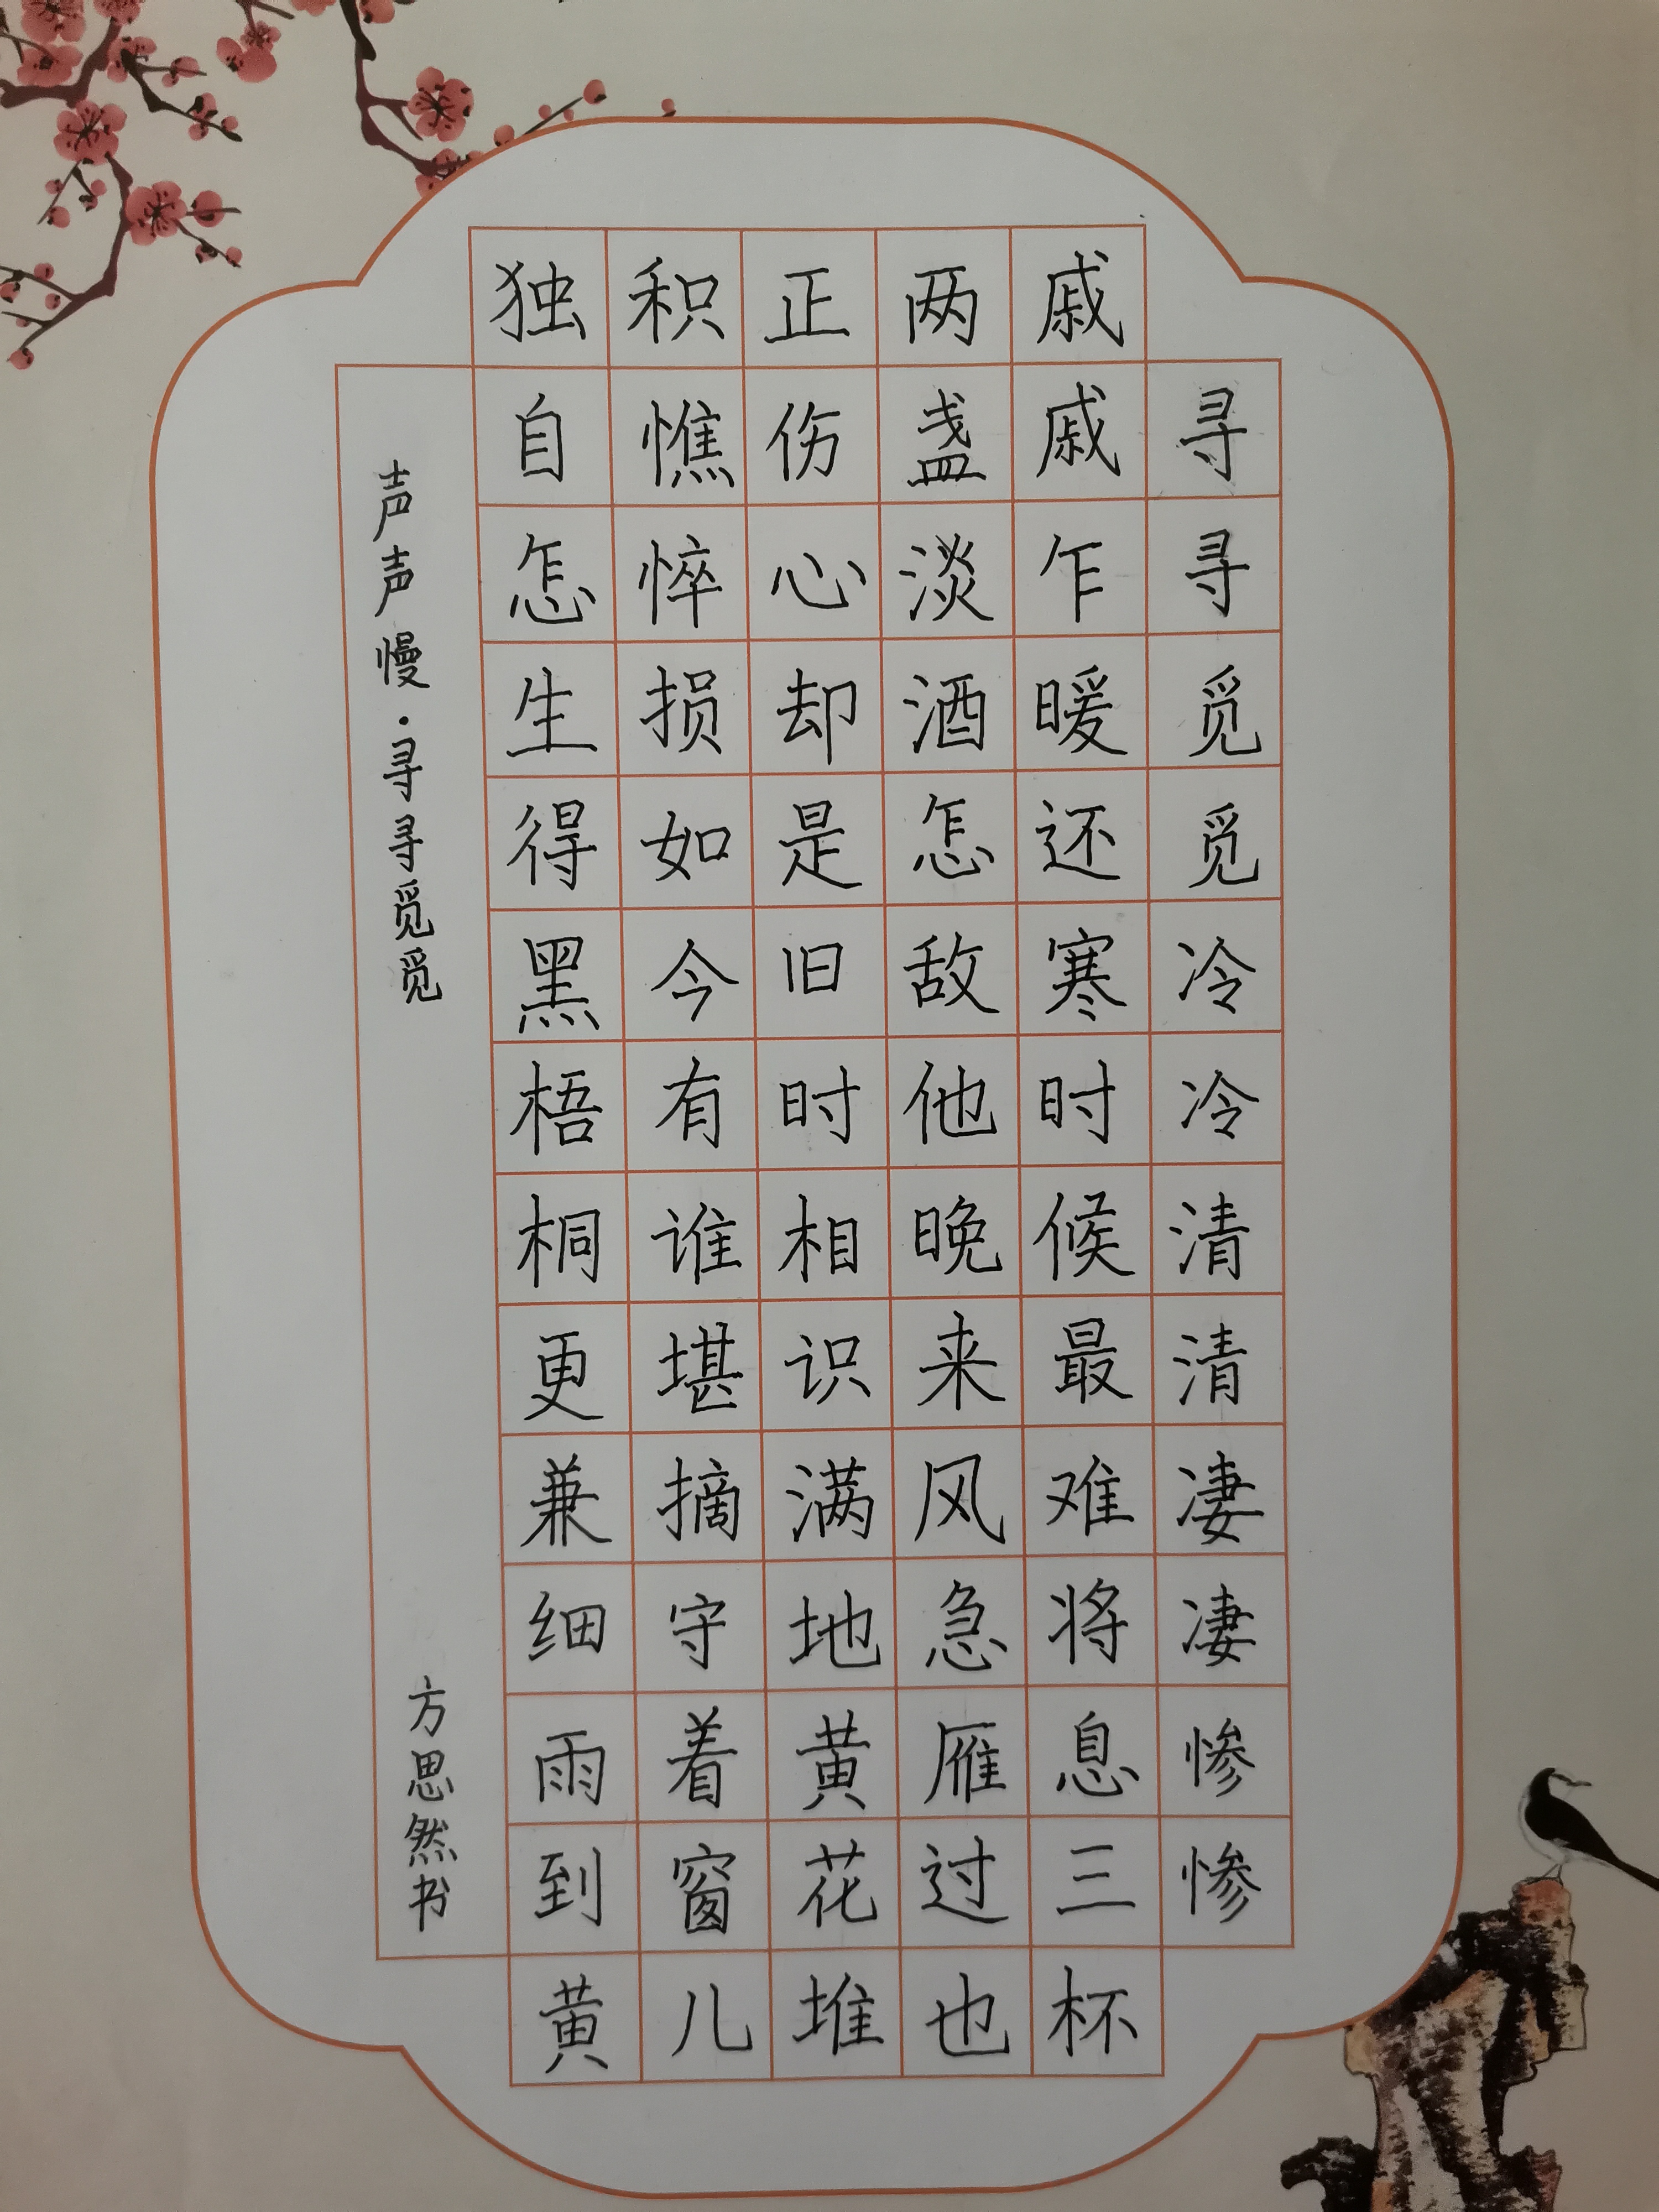 寻寻觅觅冷冷清清凄凄惨惨
戚戚乍暖还寒时候最难将息三杯
两盏淡酒怎敌他晚来风急雁过也
正伤心却是旧时相识满地黄花堆
积憔悴损如今有谁堪摘守着窗儿
独自怎生得黑梧桐更兼细雨到黄
声声慢·寻寻觅觅
方思然书